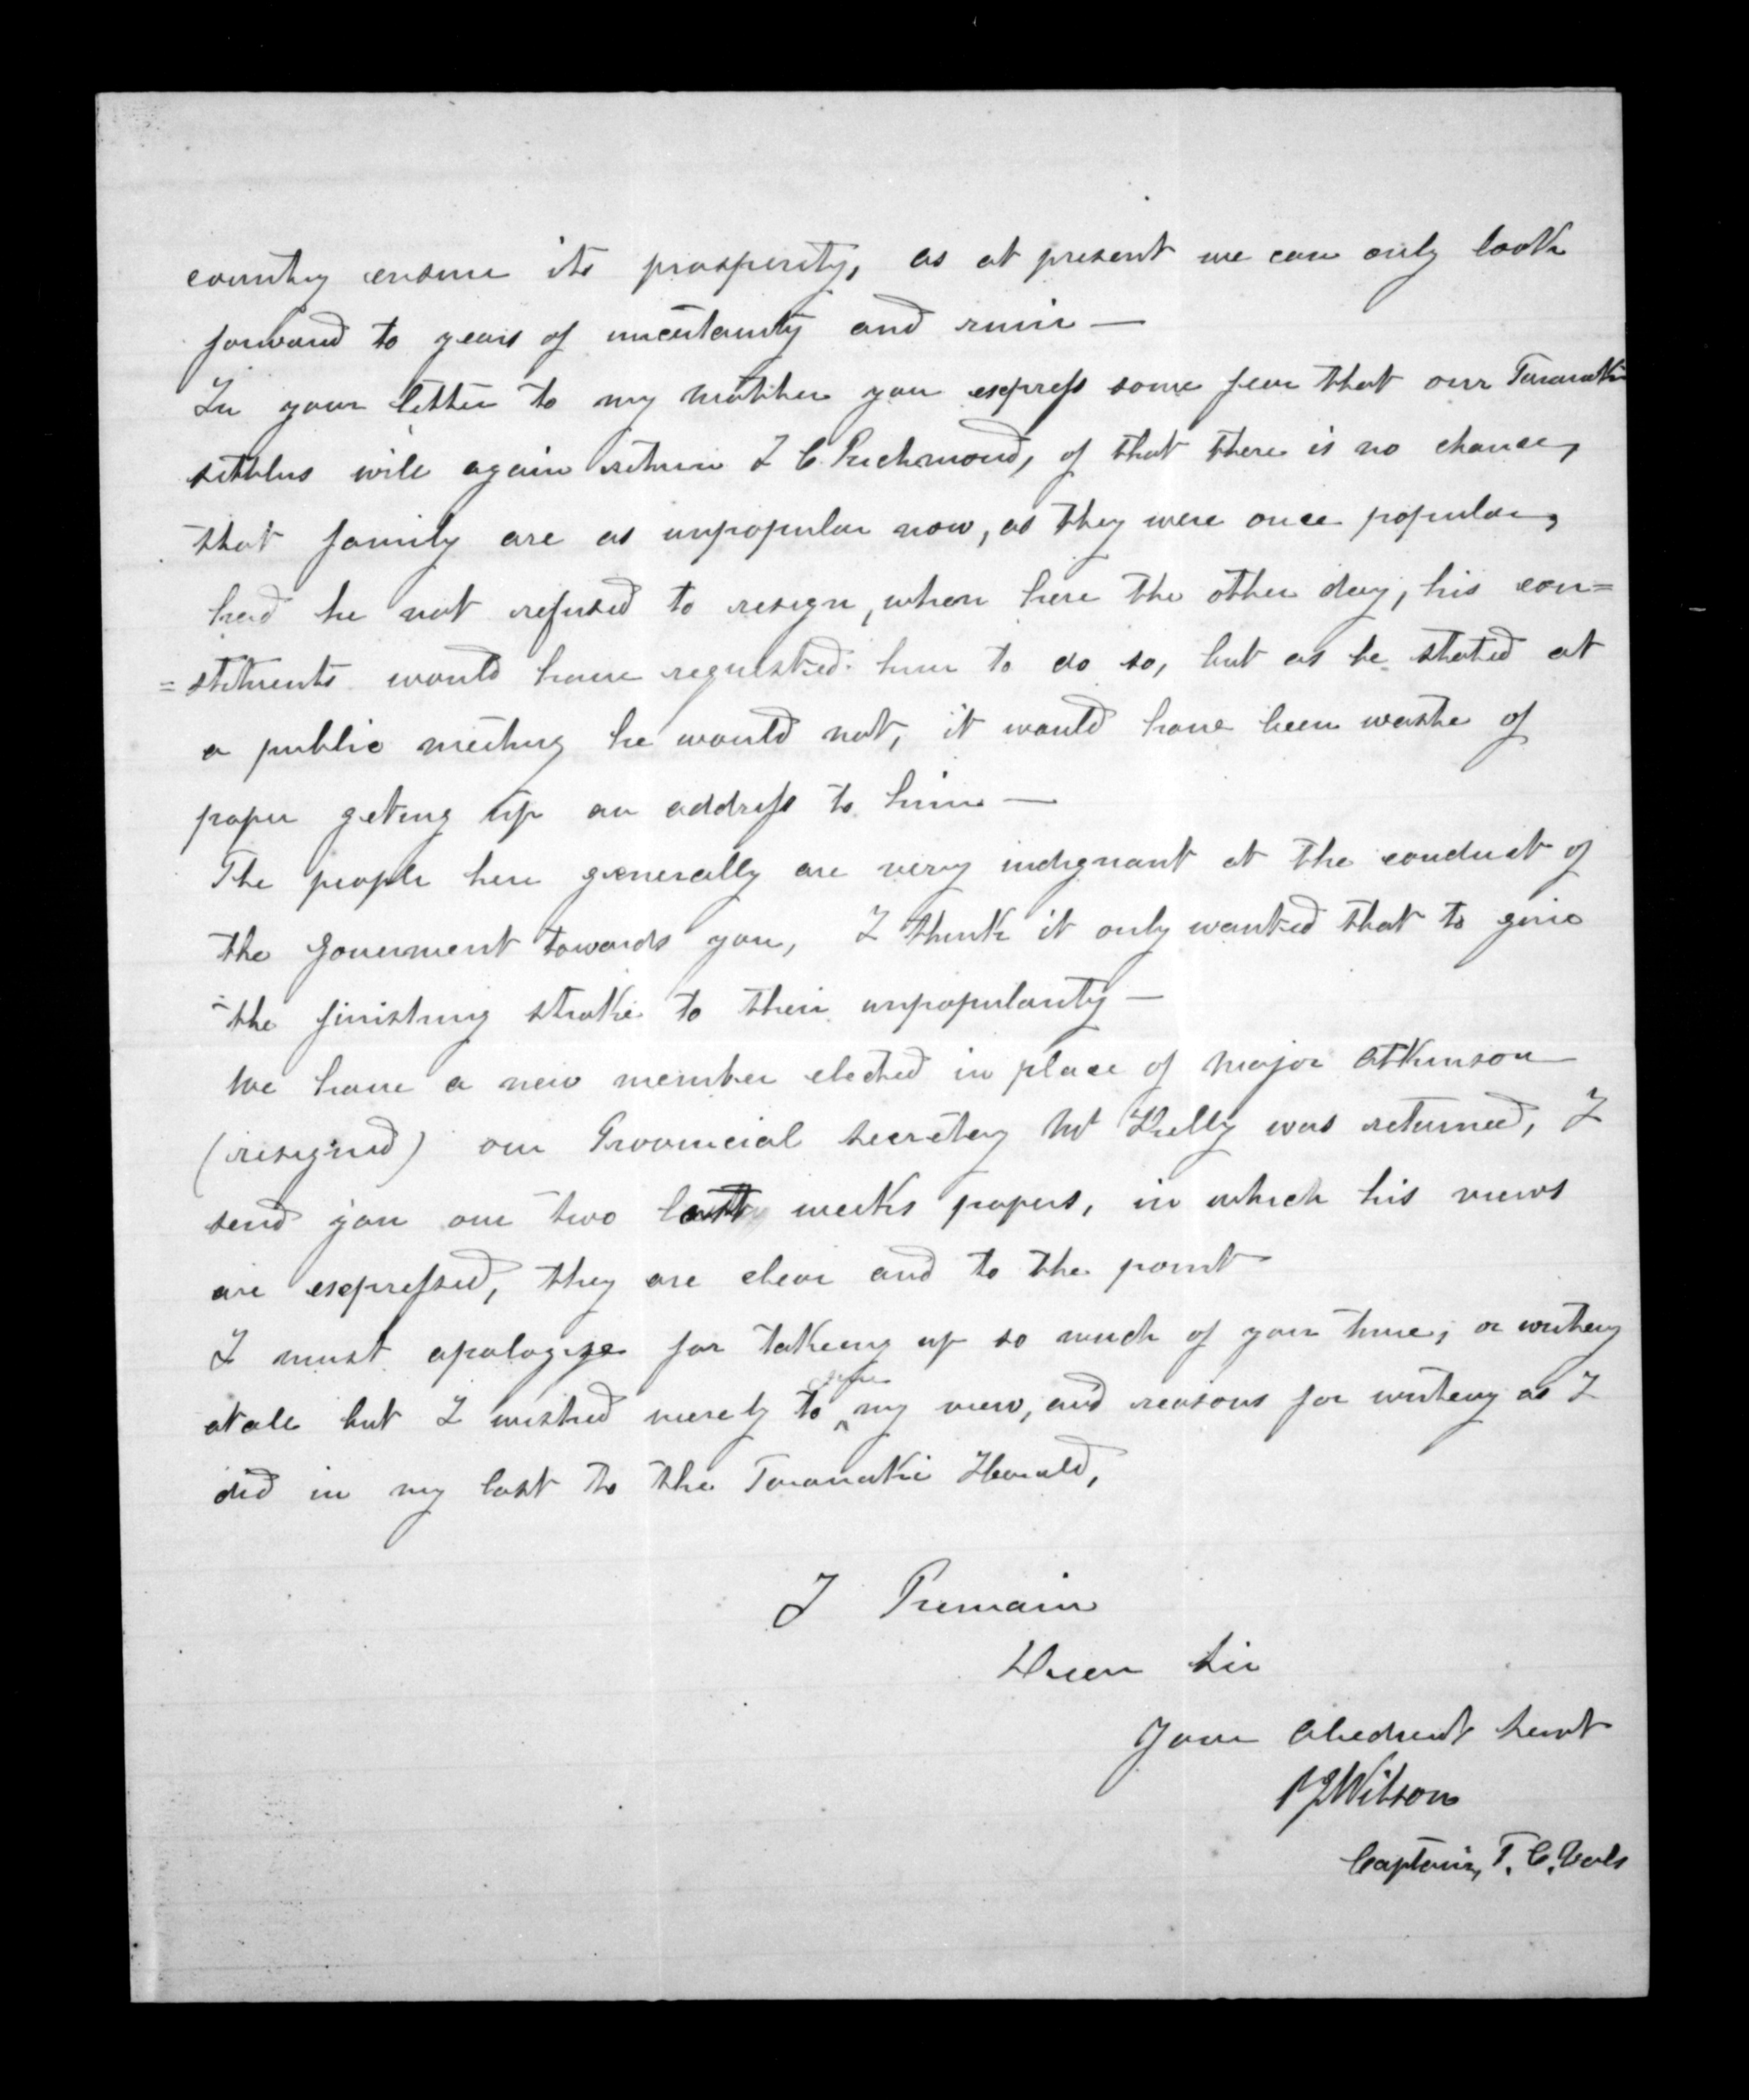 country ensure its prosperity, as at present we can only look
forward to years of uncertainty and ruin —
In your letter to my mother you express some fear that our Taranaki
settlers will again return J C Richmond, of that there is no chance,
that family are as unpopular now, as they were once popular,
had he not refused to resign, when here the other day, his con=
=stituents would have requested him to do so, but as he stated at
a public meeting he would not, it would have been waste of
paper geting up an address to him —
The people here generally are very indignant at the conduct of
the Goverment towards you, I think it only wanted that to give
the finishing stroke to their unpopularity —
We have a new member elected in place of Major Atkinson
(resigned) our Provincial Secretary Mr Kelly was returned, I
send you our two last weeks papers, in which his views
are expressed, they are clear and to the point
I must apologize for takeing up so much of your time, or writeing
atall but I wished merely to give my view, and reasons for writeing as I
did in my last to the Taranaki Herald,
I Remain
Dear Sir
Your Obedient Servt
Wilson
Captain, T. C. Vols